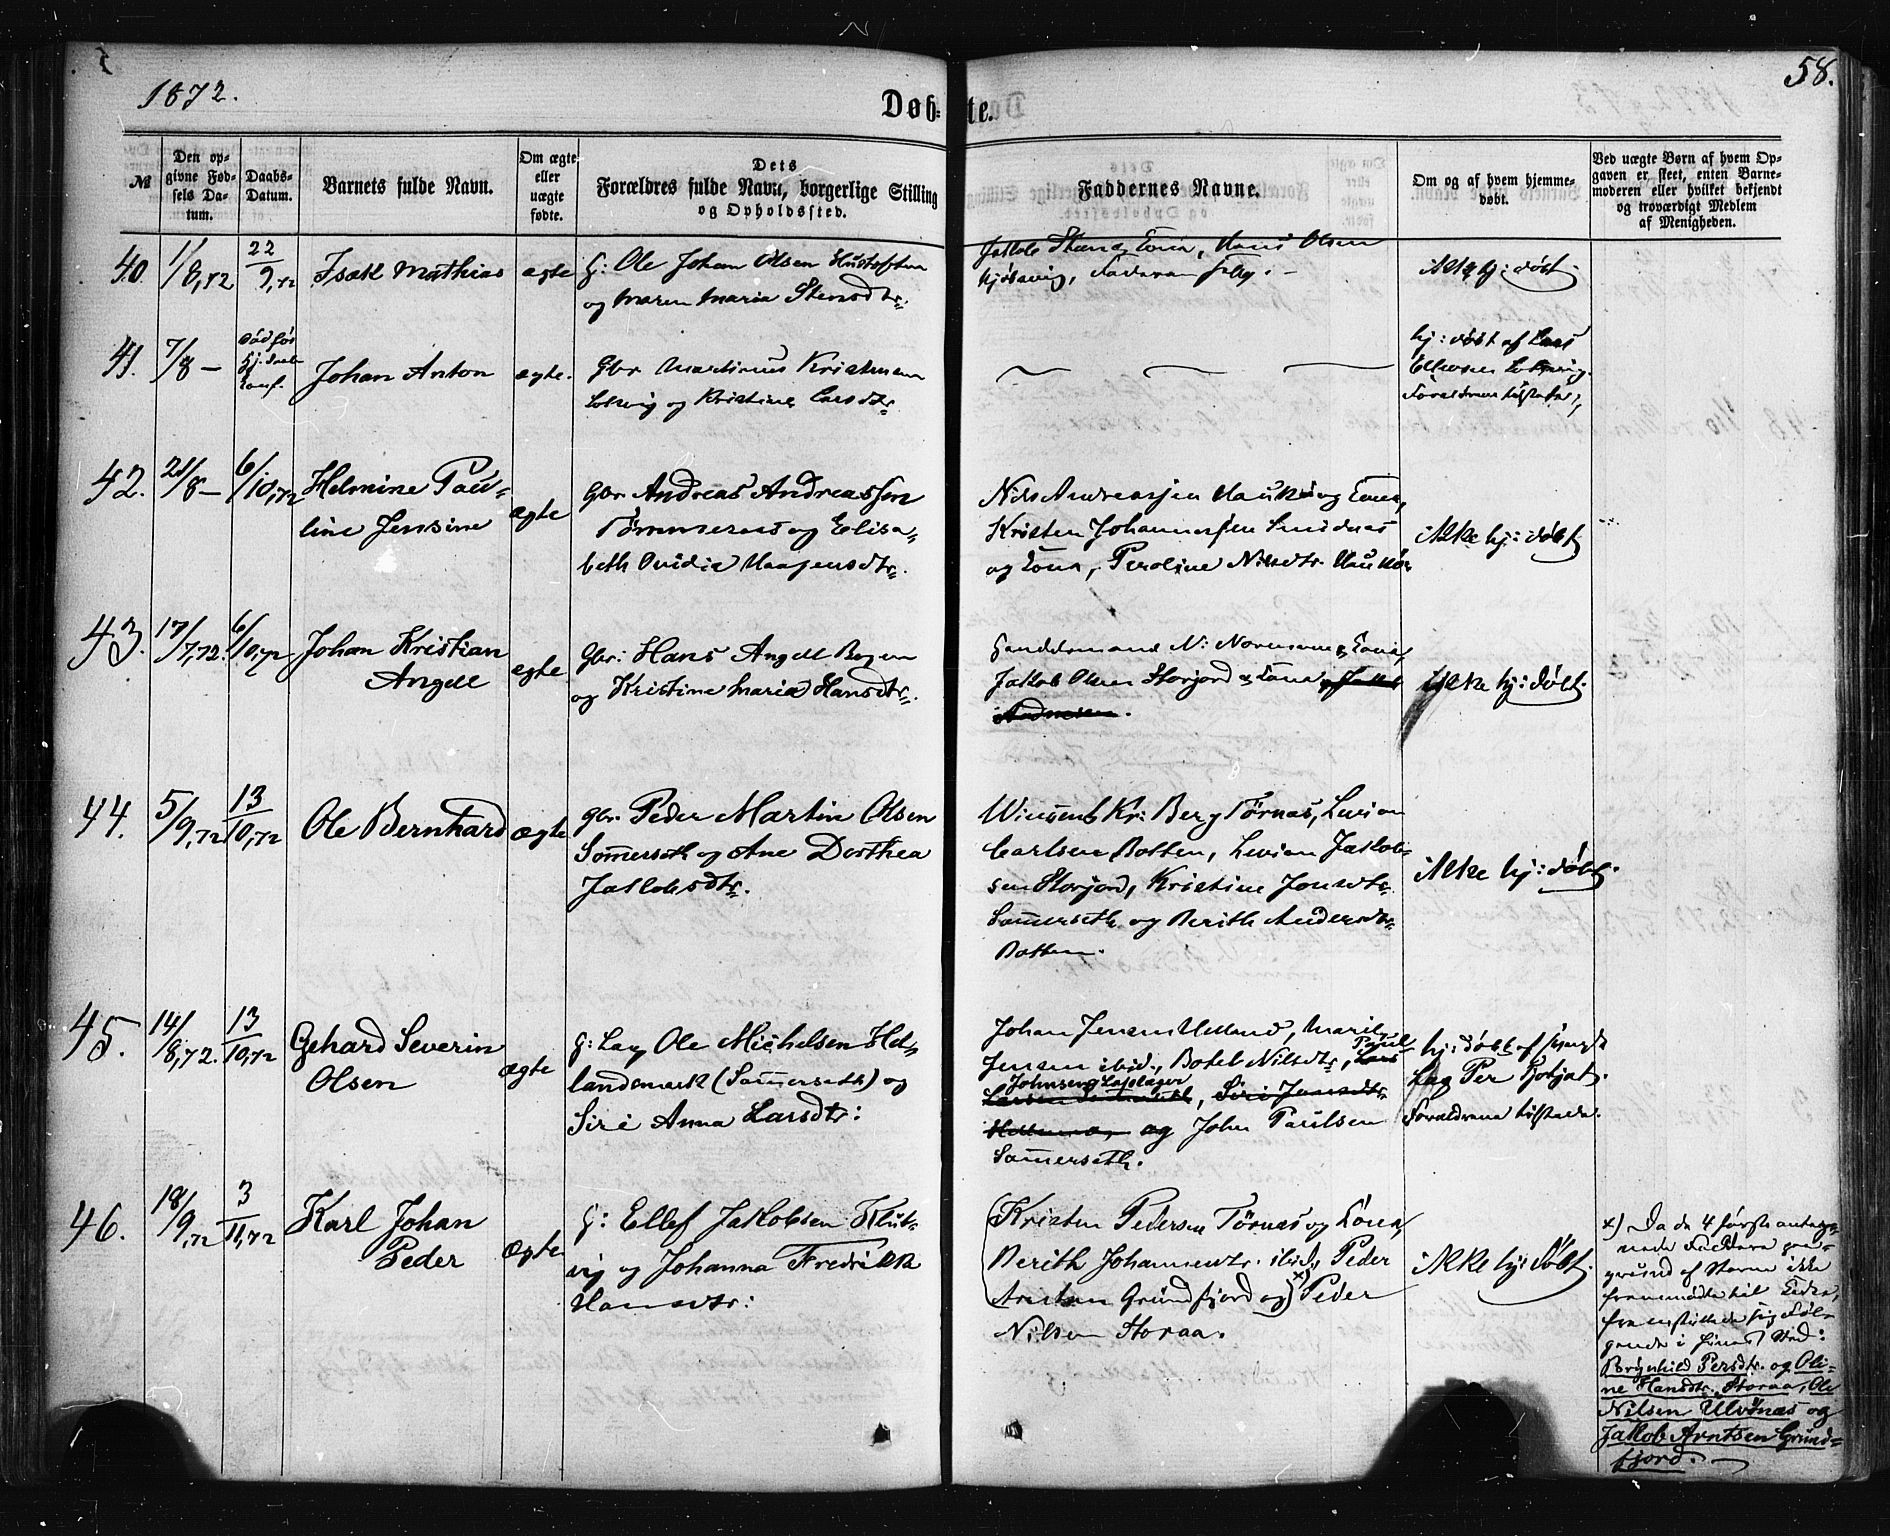 1872.
58.
Døb- te.
№
Den op-
givne Fød-
sels Da-
tum.
Daabs-
Datum.
Barnets fulde Navn.
Om ægte
eller
uægte
fødte.
Dets
Forældres fulde Navn, borgerlige Stilling
og Opholdssted.
Faddernes Navne.
Om og af hvem hjemme-
døbt.
Ved uægte Børn af hvem Op-
gaven er skeet, enten Barne-
moderen eller hvilket bekjendt
og troværdigt Medlem
af Menigheden.
40. 1/8,72 22/9,72
Isak Mathias
ægte
G: Ole Johan Olsen
og Maren Maria Stensdtr.
Jakob Kona, Hans Olsen
Kjøbsvig, Faderen
ikke hj: døbt.
41. 7/8 –
Død før
hj. daab
Johan Anton
ægte.
Gbr Martinus Kristensen
og Kristine Larsdtr.
hj: døbt af Lars
Ellevsen
Forældrene tilstede,
42. 21/8 – 6/10,72
Helmine Pau-
line Jensine
ægte
Gbr Andreas Andreassen
Tømmernes og Elisa-
beth Ovidia Haagensdtr.
Nils Andreasjen og Kona,
Kristen Johannesen
og Kona, Peroline Nilsdtr.
ikke hj: døbt.
43. 17/7,72. 6/10,72
Johan Kristian
Angell
ægte
Gbr: Hans Angell Bogen
og Kristine Maria Hansdtr.
Handelsmand N: Normann & Kona,
Jakob Olsen Storjord & Kona og Jakob
Andresen.
ikke hj: døbt.
44. 5/9,72 13/10,72
Ole Bernhard
ægte
Gbr. Peder Martin Olsen
Sommerseth og Ane Dorthea
Jakobsdtr.
Winsents Kr: Berg Tørnæs, Lurian
Carlsen Botten, Jakob-
sen Storjord, Kristine Jonsdtr.
Sommerseth og Berith Andersdtr.
Botten.
ikke hj: døbt.
45. 14/8,72. 13/10,72
Gehard Severin
Olsen
ægte
G: Lap Ole Michelsen Hel-
landsmark (Sommerseth) og
Siri Anna Larsdtr:
Johan Jensen Helland, Marit
Jensen ibid., Botel Nilsdtr, Lars Poul
Johnsen Laplager
Larsen, Siri Jonsdtr.
og John Paulsen
Sommerseth.
hj: døbt af
Lap Per
Forældrene tilstede.
46. 18/9,72 3/11,72
Karl Johan
Peder
Ægte
G: Ellef Jakobsen Klub-
vig og Johanna Fredrikka
Hansdtr:
(Kristen Pedersen Tørnæs og Kona,
Berith Johannesdtr. ibid, Peder
Arntsen Grundfjord og) x) Peder
Nilsen Storaa.
ikke hj: døbt.
x) Da de 4 første antag-
nede Faddere paa-
grund af Storm ikke
fremmødte til Tiden,
fremstillede sig Føl-
gende i hines Sted:
Brynhild Persdtr. og Oli-
ne Hansdtr. Storaa, Ole
Nilsen Ulvønæs og
Jakob Arntsen Grund-
fjord. –